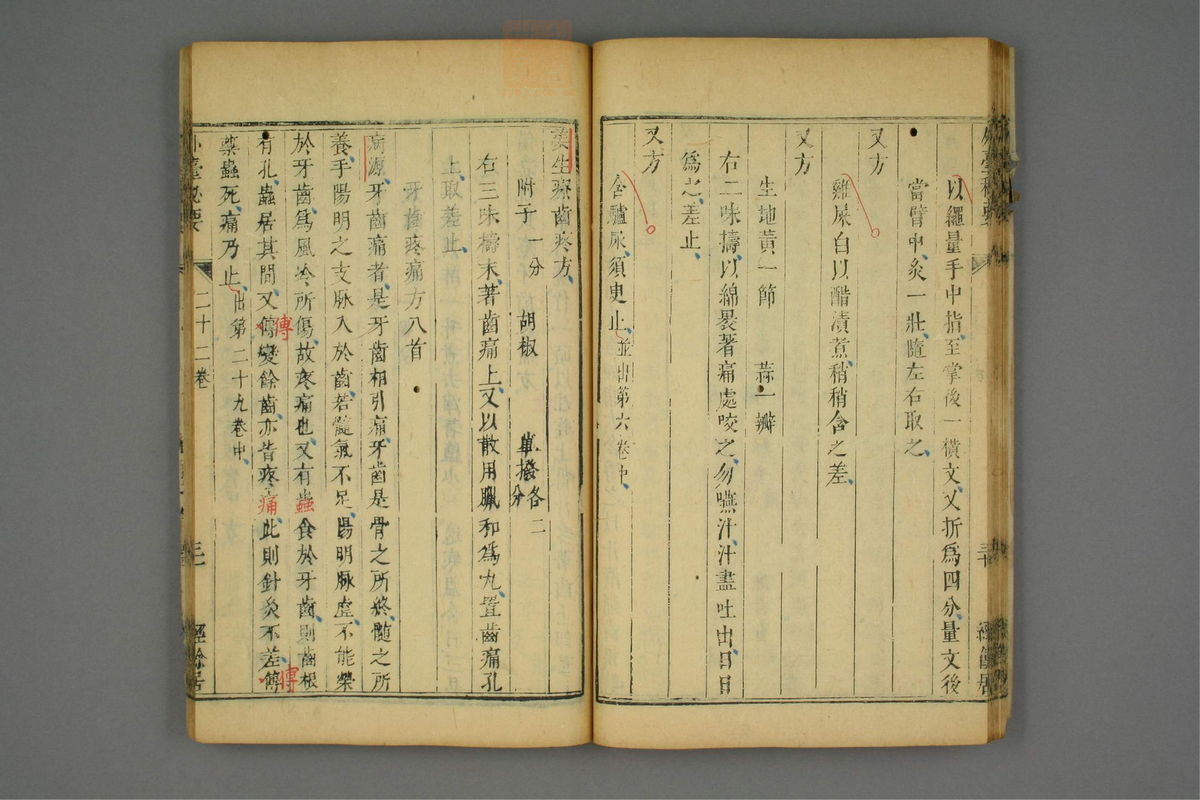 以繩量手中指至掌後一橫文又折為四分量文後
當臂中灸一壯隨左右取之
又方
雞屎白以醋漬煮稍稍含之差
又方
生地黃一節 蒜一瓣
右二味擣以綿裹著痛處咬之勿嚥汁汁盡吐出日日
為之差止
又方
含驢尿須臾止並出第六卷中
姜生療齒疼方
附子一分 胡椒 蓽撥各二分
右三味擣末著齒痛上又以散用臘和為丸置齒痛孔
上取差止
牙齒疼痛方八首
病源牙齒痛者是牙齒相引痛牙齒是骨之所終髓之所
養手陽明之支脉入於齒若髓氣不足陽明脉虛不能榮
於牙齒為風冷所傷故疼痛也又有蟲食於牙齒則齒根
有孔蟲居其間又傳變餘齒亦皆疼痛此則針灸不差傅
藥蟲死痛乃止出第二十九卷中
外臺祕要 二十二卷 三十一 經餘居